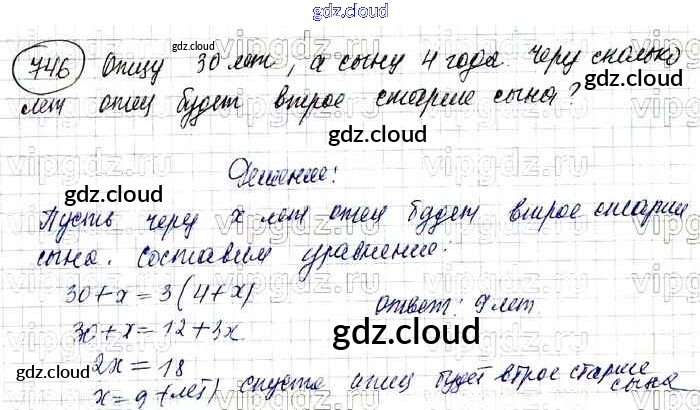 gdz.cloud
746 Отцу 30 лет, а сыну 4 года. Через сколько
лет отец будет втрое старше сына?
Решение:
Пусть через x лет отец будет втрое старше
сына. Составим уравнение:
30+x=3(4+x)
30+x=12+3x
2x=18
x=9 (лет) спустя отец будет втрое старше
сына
Ответ: 9 лет
gdz.cloud
gdz.cloud
gdz.cloud
gdz.cloud
gdz.cloud
gdz.cloud
gdz.cloud
gdz.cloud
gdz.cloud